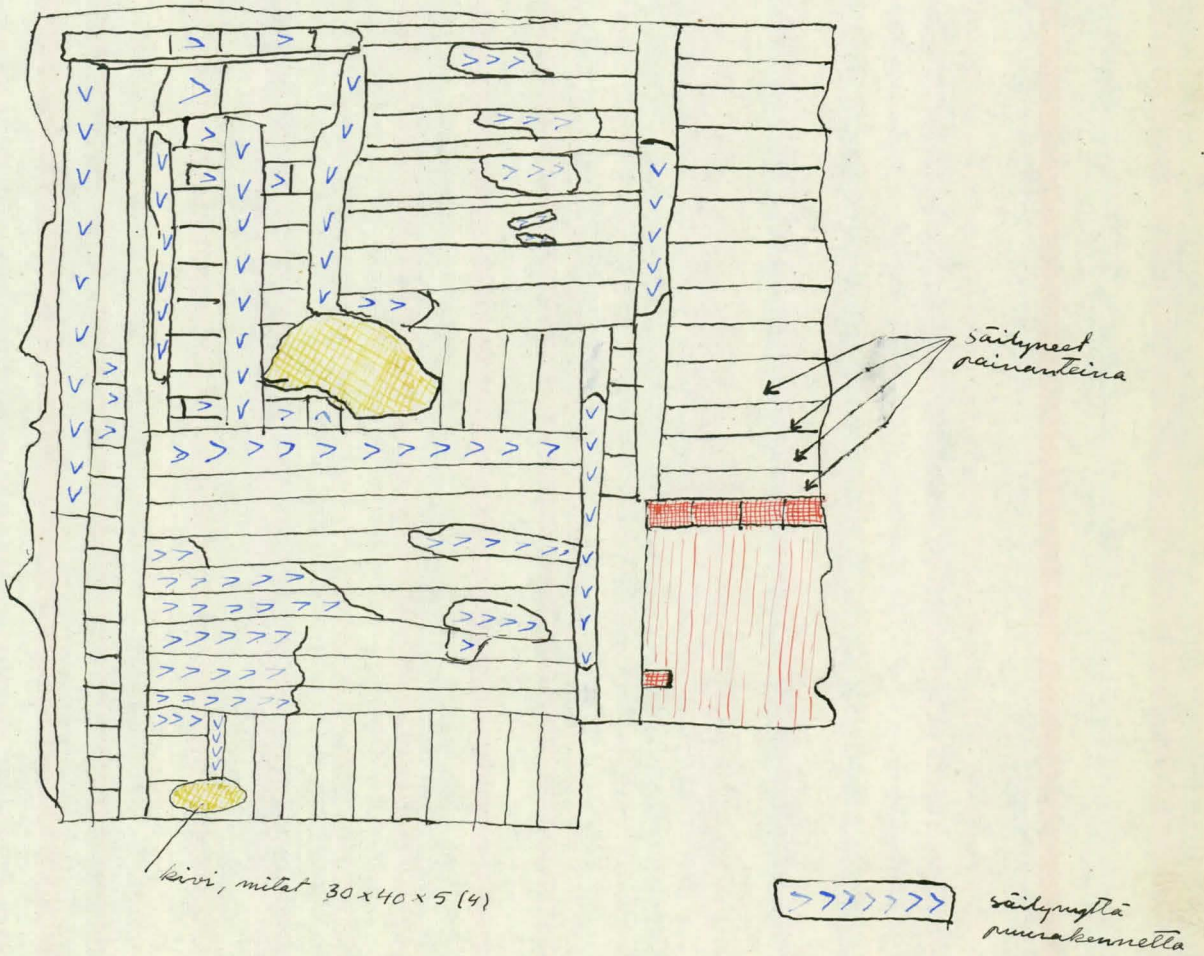 säilyneet
painanteina
kivi, mitat 30 x 40 x 5 (4)
säilynyttä
puurakennetta